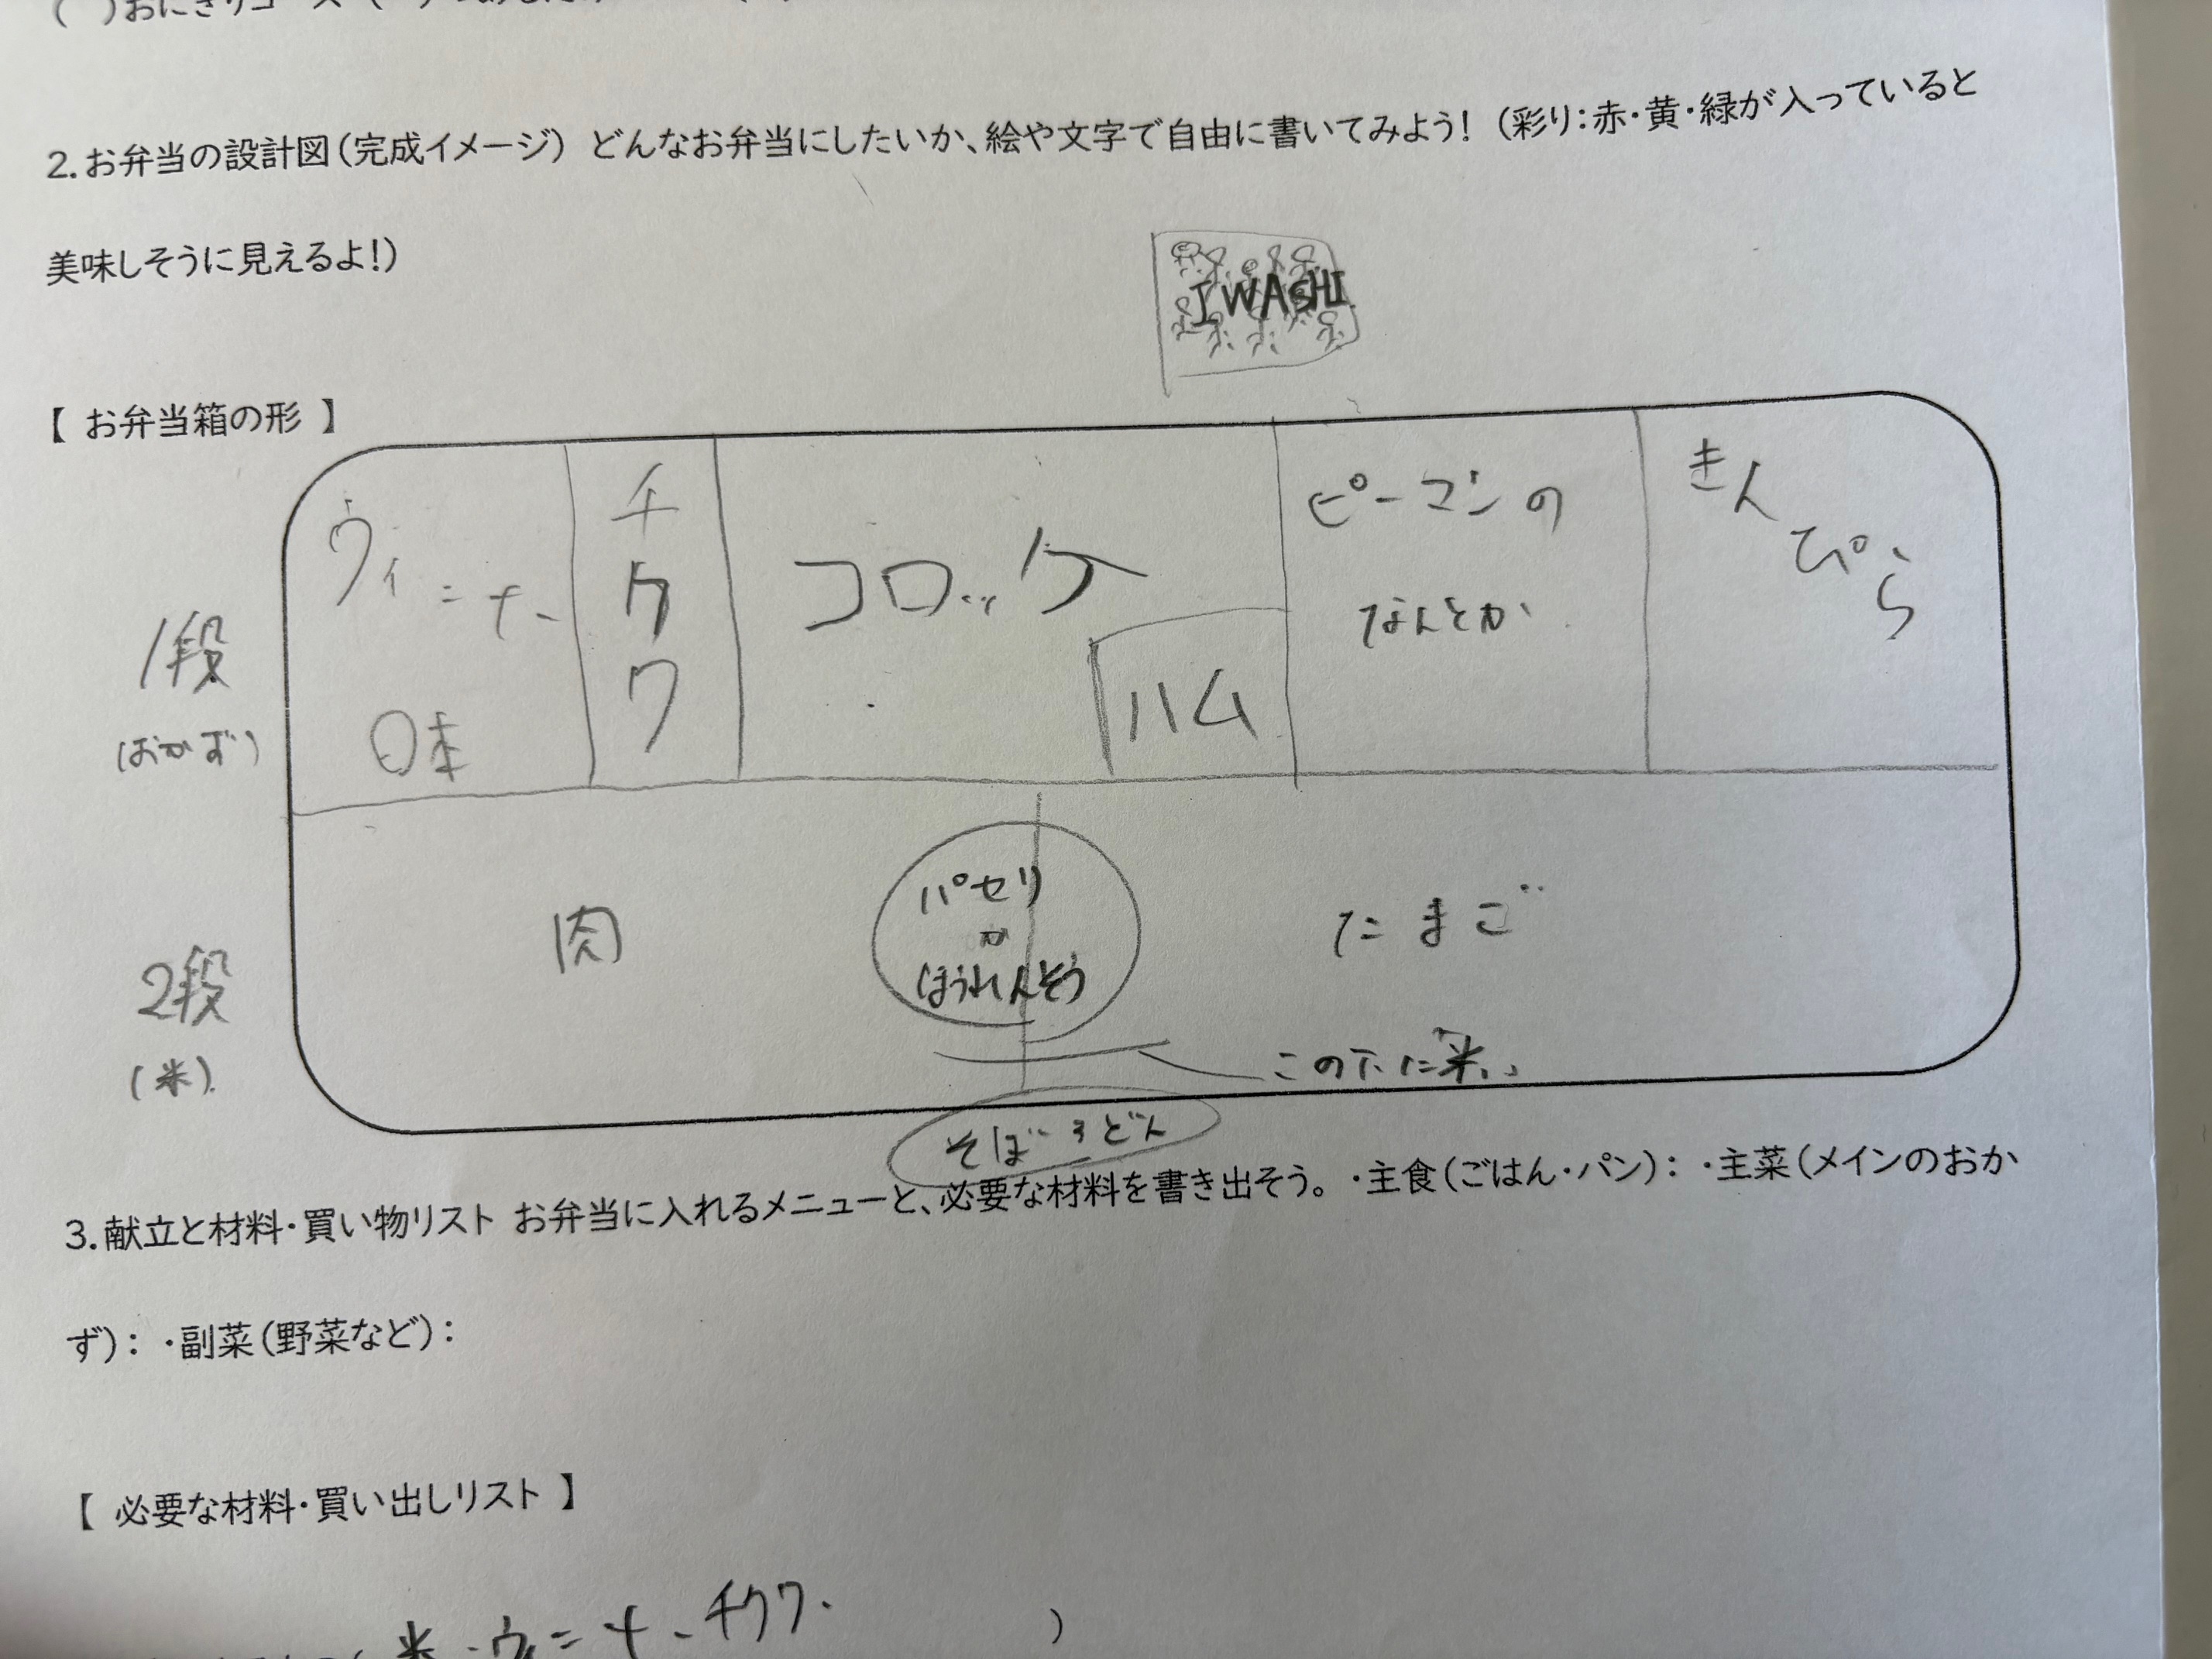 ( )おにぎりコース
2.お弁当の設計図(完成イメージ) どんなお弁当にしたいか、絵や文字で自由に書いてみよう!(彩り:赤・黄・緑が入っていると
美味しそうに見えるよ!)
IWASHI
【 お弁当箱の形 】
1段
(おかず)
ウィンナー
チクワ
コロッケ
ハム
ピーマンの
なんとか
きんぴら
2段
(米)
肉
パセリ
か
ほうれんそう
たまご
この下に米
そぼろどん
3.献立と材料・買い物リスト お弁当に入れるメニューと、必要な材料を書き出そう。・主食(ごはん・パン): ・主菜(メインのおか
ず): ・副菜(野菜など):
【 必要な材料・買い出しリスト 】
米・ウィンナー、チクワ、 )